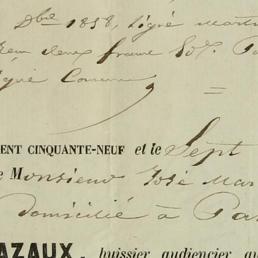 Dbre 1858, signé Mart
deux francs 50c. Pa
signé
ENT CINQUANTE-NEUF et le Sept
e Monsieur José Mar
domicilié à Pa
AZAUX, huissier audiencier au